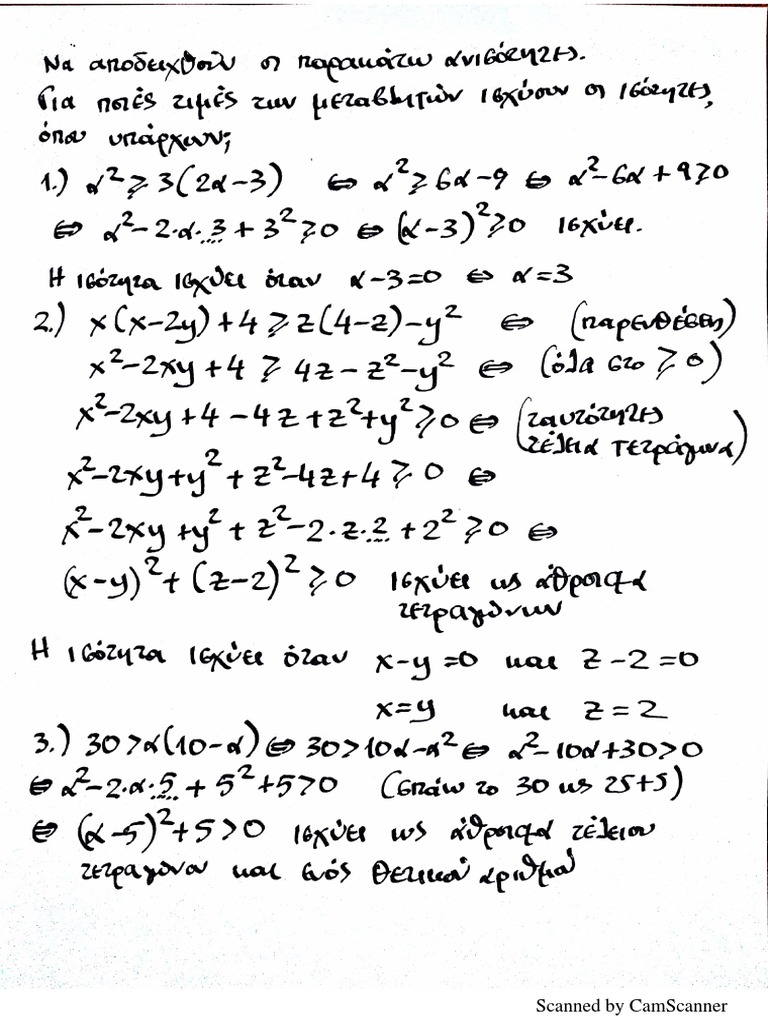 Να αποδειχθούν οι παρακάτω ανισότητες.
Για ποιές τιμές των μεταβλητών ισχύουν οι ισότητες,
όπου υπάρχουν;
1.) α² ≥ 3(2α-3) ⇔ α² ≥ 6α-9 ⇔ α²-6α+9 ≥ 0
⇔ α²-2·α·3+3² ≥ 0 ⇔ (α-3)² ≥ 0 ισχύει.
Η ισότητα ισχύει όταν α-3=0 ⇔ α=3
2.) x(x-2y)+4 ≥ z(4-z)-y² ⇔ (παρενθέσεις)
x²-2xy+4 ≥ 4z-z²-y² ⇔ (όλα στο ≥ 0)
x²-2xy+4-4z+z²+y² ≥ 0 ⇔ (ταυτότητες
τέλεια τετράγωνα)
x²-2xy+y²+z²-4z+4 ≥ 0 ⇔
x²-2xy+y²+z²-2·z·2+2² ≥ 0 ⇔
(x-y)²+(z-2)² ≥ 0 ισχύει ως άθροισμα
τετραγώνων
Η ισότητα ισχύει όταν x-y=0 και z-2=0
x=y και z=2
3.) 30>α(10-α) ⇔ 30>10α-α² ⇔ α²-10α+30>0
⇔ α²-2·α·5+5²+5>0 (σπάω το 30 ως 25+5)
⇔ (α-5)²+5>0 ισχύει ως άθροισμα τέλειου
τετραγώνου και ενός θετικού αριθμού
Scanned by CamScanner